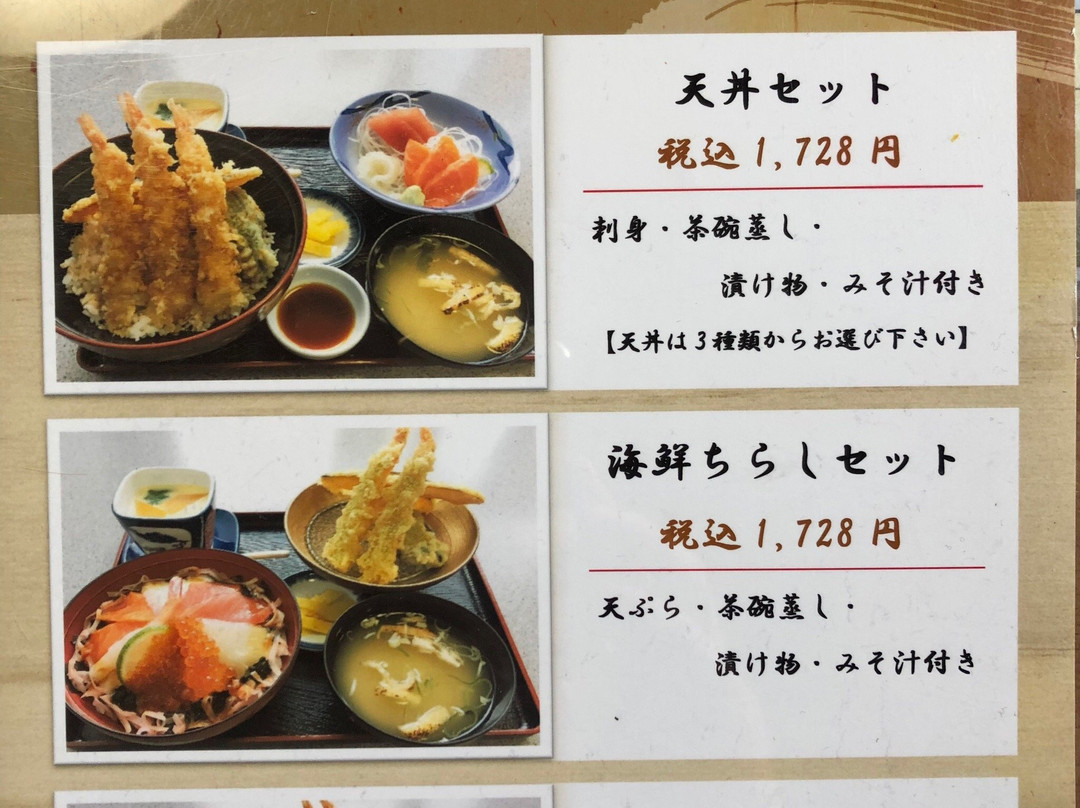 天丼セット
税込1,728円
刺身・茶碗蒸し・
漬け物・みそ汁付き
【天丼は3種類からお選び下さい】
海鮮ちらしセット
税込1,728円
天ぷら・茶碗蒸し・
漬け物・みそ汁付き